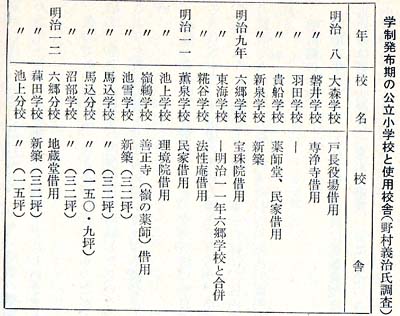 学制発布期の公立小学校と使用校舎(野村義治氏調査)
年 校名 校舎
明治 八 大森学校 戸長役場借用
〃 磐井学校 専浄寺借用
〃 羽田学校 ―
〃 貴船学校 薬師堂、民家借用
〃 新泉学校 新築
明治九年 六郷学校 宝珠院借用
〃 東海学校 ―明治一一年六郷学校と合併
〃 糀谷学校 法性庵借用
明治一一 薫泉学校 民家借用
〃 池上学校 理境院借用
〃 嶺鵜学校 善正寺(嶺の薬師)借用
〃 池雪学校 新築(三二坪)
〃 馬込学校 〃(三二坪)
〃 馬込分校 〃(一五〇・九坪)
〃 沼部学校 〃(三二坪)
明治一二 六郷分校 地蔵堂借用
〃 蒲田学校 新築(三二坪)
〃 池上分校 〃(一五坪)